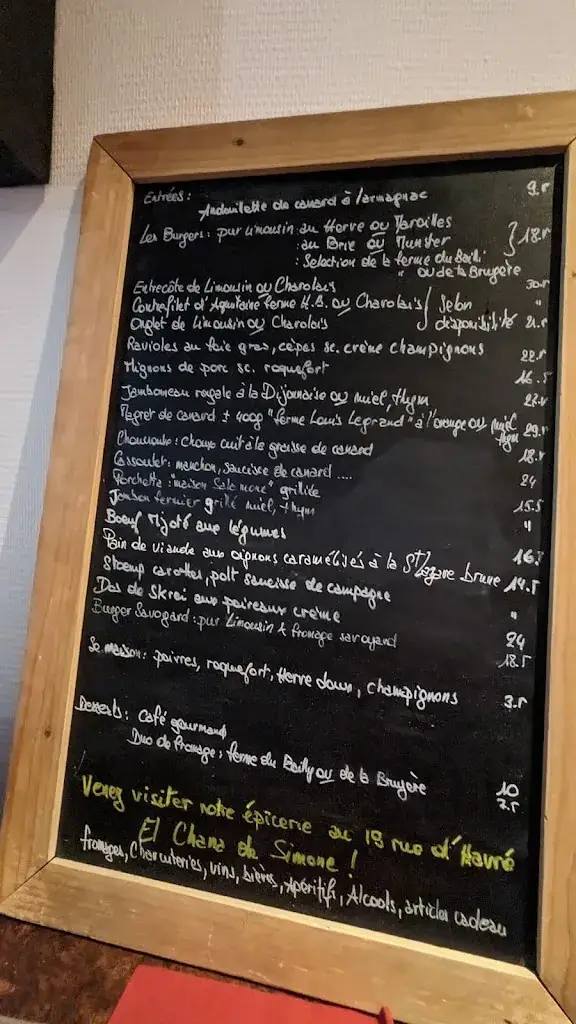 Entrées :
Andouillette de canard à l'armagnac 9.5
Les Burgers : pur Limousin au Herve ou Maroilles
: au Brie ou Munster } 18.5
: Selection de la ferme du Bailli
" ou de la Bruyère
Entrecôte de Limousin ou Charolais
Contrefilet d'Aquitaine ferme H.B. ou Charolais } Selon "
Onglet de Limousin ou Charolais disponibilité 21.5
Ravioles au foie gras, cèpes sc. crème champignons 22.5
Mignons de porc sc. roquefort 16.5
Jambonneau royale à la Dijonnaise ou miel, thym
Magret de canard ± 400g "ferme Louis Legrand" à l'orange ou miel thym
Choumoute : choux cuit à la graisse de canard
Cassoulet : manchon, saucisse de canard .... 24
Porchetta "maison Salemone" grillée 15.5
Jambon fermier grillé miel, thym "
Boeuf Mijoté aux légumes
Pain de viande aux oignons caramélisés à la St Lazare brune 14.5
Stoemp carottes, polt saucisse de campagne "
Dos de Skrei aux poireaux crème 24
Burger Savoyard : pur Limousin & fromage savoyard 18.5
Sc maison : poivres, roquefort, Herve doux, champignons 3.5
Desserts : Café gourmand 10
Duo de fromage : ferme du Bailly ou de la Bruyère 7.5
Venez visiter notre épicerie au 18 rue d'Havré
El Chana de Simone !
fromages, Charcuteries, vins, bières, Apéritifs, Alcools, articles cadeau